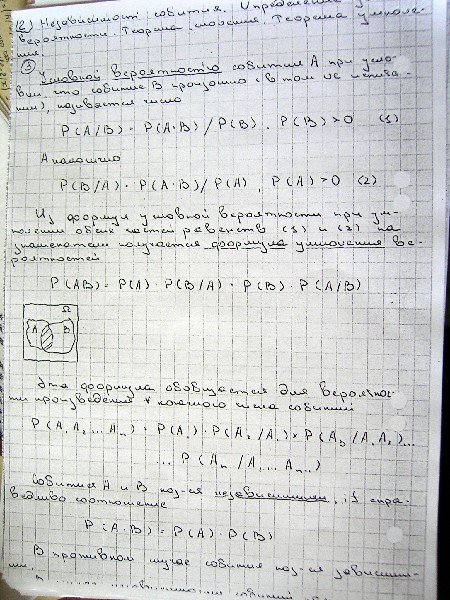 12) Независимость события. Определение
вероятности. Теорема сложения. Теорема умноже-
ния.
③ Условной вероятностью события А при усло-
вии, что событие В произошло (в том же испыта-
нии), называется число
P(A/B) = P(A·B) / P(B), P(B)>0 (1)
Аналогично
P(B/A) = P(A·B) / P(A), P(A)>0 (2)
Из формул условной вероятности при ум-
ножении обеих частей равенств (1) и (2) на
знаменатели получается формула умножения ве-
роятностей
P(AB) = P(A) · P(B/A) = P(B) · P(A/B)
Ω
A B
Эта формула обобщается для вероятнос-
ти произведения ∀ конечного числа событий
P(A₁A₂...Aₙ) = P(A₁) · P(A₂/A₁) × P(A₃/A₁A₂)...
... P(Aₙ/A₁...Aₙ₋₁)
События А и В наз-ся независимыми, если спра-
ведливо соотношение
P(A·B) = P(A) · P(B)
В противном случае события наз-ся зависимы-
ми.